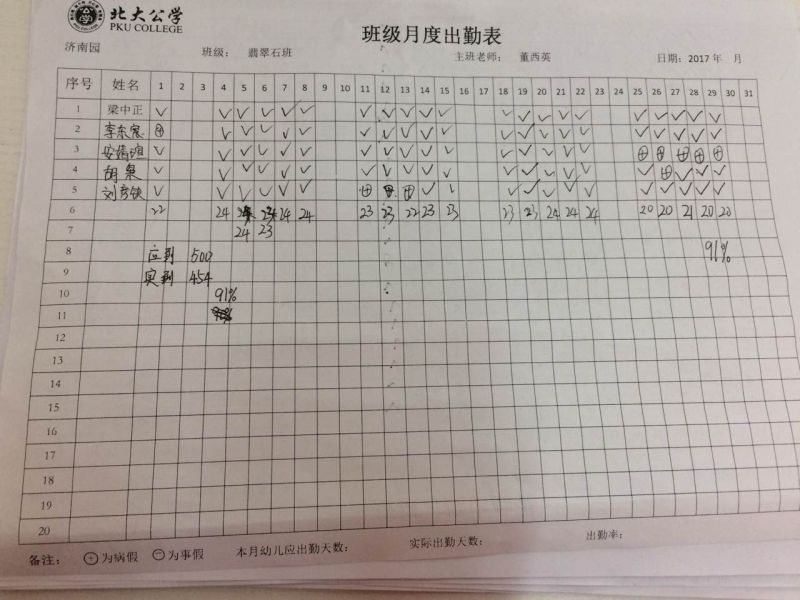 北大公学
PKU COLLEGE
班级月度出勤表
济南园 班级： 翡翠石班 主班老师： 董西英 日期：2017年 月
序号 姓名 1 2 3 4 5 6 7 8 9 10 11 12 13 14 15 16 17 18 19 20 21 22 23 24 25 26 27 28 29 30 31
1 梁中正 ✓ ✓ ✓ ✓ ✓ ✓ ✓ ✓ ✓ ✓ ✓ ✓ ✓ ✓ ✓ ✓ ✓ ✓ ✓ ✓ ✓
2 ⊕ ✓ ✓ ✓ ✓ ✓ ✓ ✓ ✓ ✓ ✓ ✓ ✓ ✓ ✓ ✓ ✓ ✓ ✓ ✓ ✓
3 ✓ ✓ ✓ ✓ ✓ ✓ ✓ ✓ ✓ ✓ ✓ ✓ ✓ ✓ ✓ ✓ ⊕ ⊕ ⊕ ⊕ ⊕
4 胡 ✓ ✓ ✓ ✓ ✓ ✓ ✓ ✓ ✓ ✓ ✓ ✓ ✓ ✓ ✓ ✓ ✓ ⊕ ✓ ✓ ✓
5 刘彦 ✓ ✓ ✓ ✓ ✓ ✓ ⊕ ⊕ ⊕ ✓ ✓ ✓ ✓ ✓ ✓ ✓ ✓ ✓ ✓ ✓ ✓
6 22 24 23 24 24 23 23 22 23 23 23 23 24 24 24 20 20 21 20 20
7 24 23
8 应到 500 91%
9 实到 454
10 91%
11
12
13
14
15
16
17
18
19
20
备注： ⊕为病假 ⊖为事假 本月幼儿应出勤天数： 实际出勤天数： 出勤率：